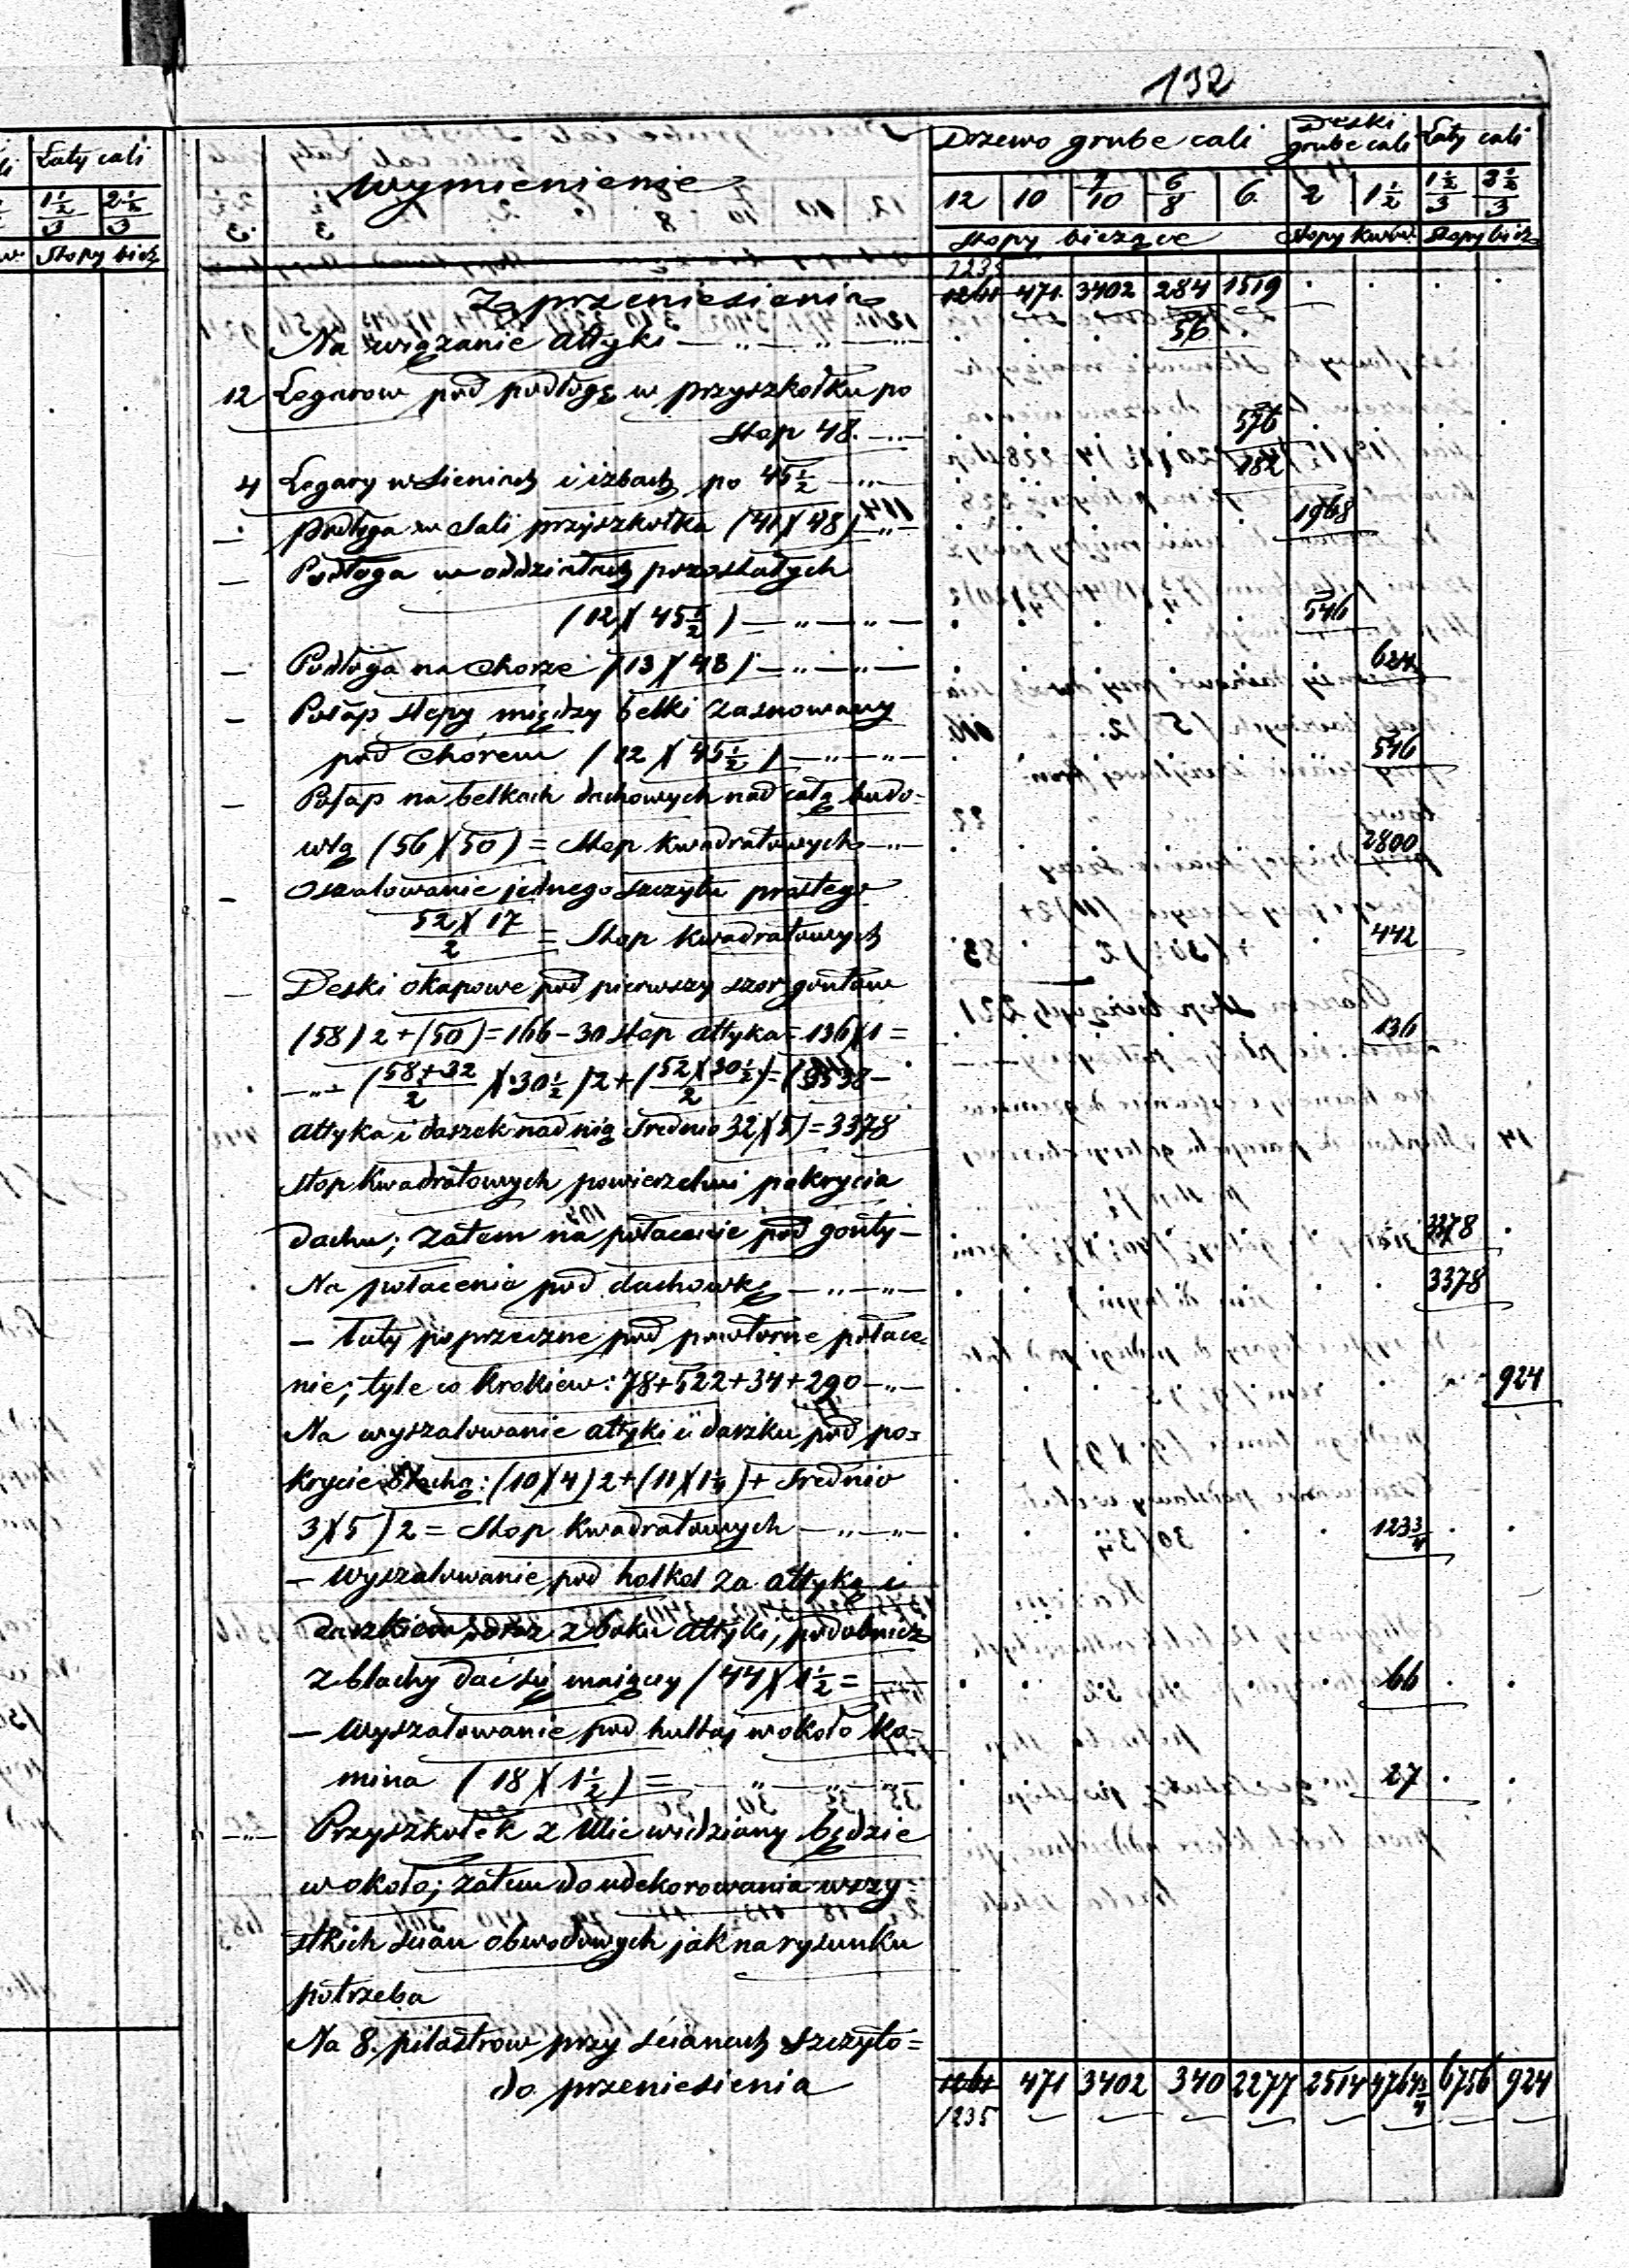 132
Łaty cali
1½/3 2½/3
Stopy bież
Wymienienie
Drzewo grube cali
Deski grube cali
Łaty cali
12 10 9/10 6/8 6 2 1½ 1½/3 2½/3
Stopy bieżące Stopy kwadr. Stopy bież
1235
Z przeniesienia 1261 471 3402 284 1519
Na związanie attyki 56
12 Legarow pod podłogę w przyszkołku po
Stop 48. 576
4 Legary w sieniach i izbach po 45½ 182
Podłoga w Sali przyszkołka (41)(48) 1968
Podłoga w oddziałach pozostałych
(12)(45½) 546
Podłoga na Chorze (13)(48) 624
Połap ślepy między belki zasuowany
pod Chórem (12)(45½) 546
Połap na belkach dachowych nad całą budo=
wlą (56)(50) = Stop kwadratowych 2800
Oszalowanie jednego szczytu prostego
52)(17/2 = Stop kwadratowych 442
Deski okapowe pod pierwszy szor gontów
(58)2+(50)=166-30 stop attyka=136)(1= 136
(58+32/2)(30½)2+(52)(30½/2)=(3538-
attyka i daszek nad nią średnio 32)(5)=3378
stop Kwadratowych powierzchni pokrycia
dachu; zatem na połacenie pod gonty- 3378
Na połacenia pod dachowkę 3378
- Łaty poprzeczne pod powtorne połace=
nie; tyle co krokiew: 78+522+34+290 924
Na wyszalowanie attyki i daszku pod po=
krycie blachą: (10)(4)2+(11)(1¼)+średnio
3)(5)2 = Stop kwadratowych 123¾
- Wyszalowanie pod holkel za attyką i
daszkiem oraz z boku attyki, podobnież
z blachy dać się mający (44)(1½= 66
- Wyszalowanie pod hulkaj wokoło ko=
mina (18)(1½)= 27
Przyszkołek z Ulic widziany będzie
wokoło; zatem do udekorowania wszy=
stkich scian obwodowych jak na rysunku
potrzeba
Na 8. pilastrow przy scianach szczyto=
do przeniesienia 1261 471 3402 340 2277 2514 4764¾ 6756 924
1235